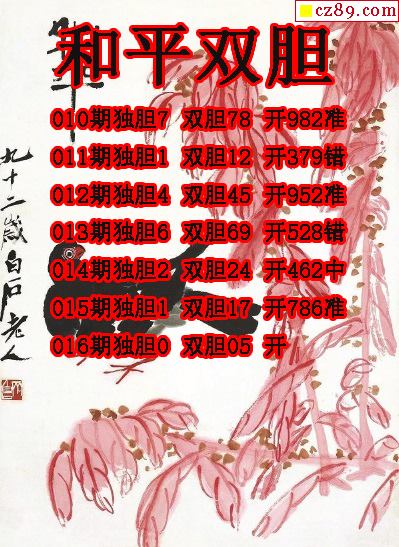 cz89.com
和平双胆
010期独胆7 双胆78 开982准
011期独胆1 双胆12 开379错
012期独胆4 双胆45 开952准
013期独胆6 双胆69 开528错
014期独胆2 双胆24 开462中
015期独胆1 双胆17 开786准
016期独胆0 双胆05 开
九十二岁白石老人